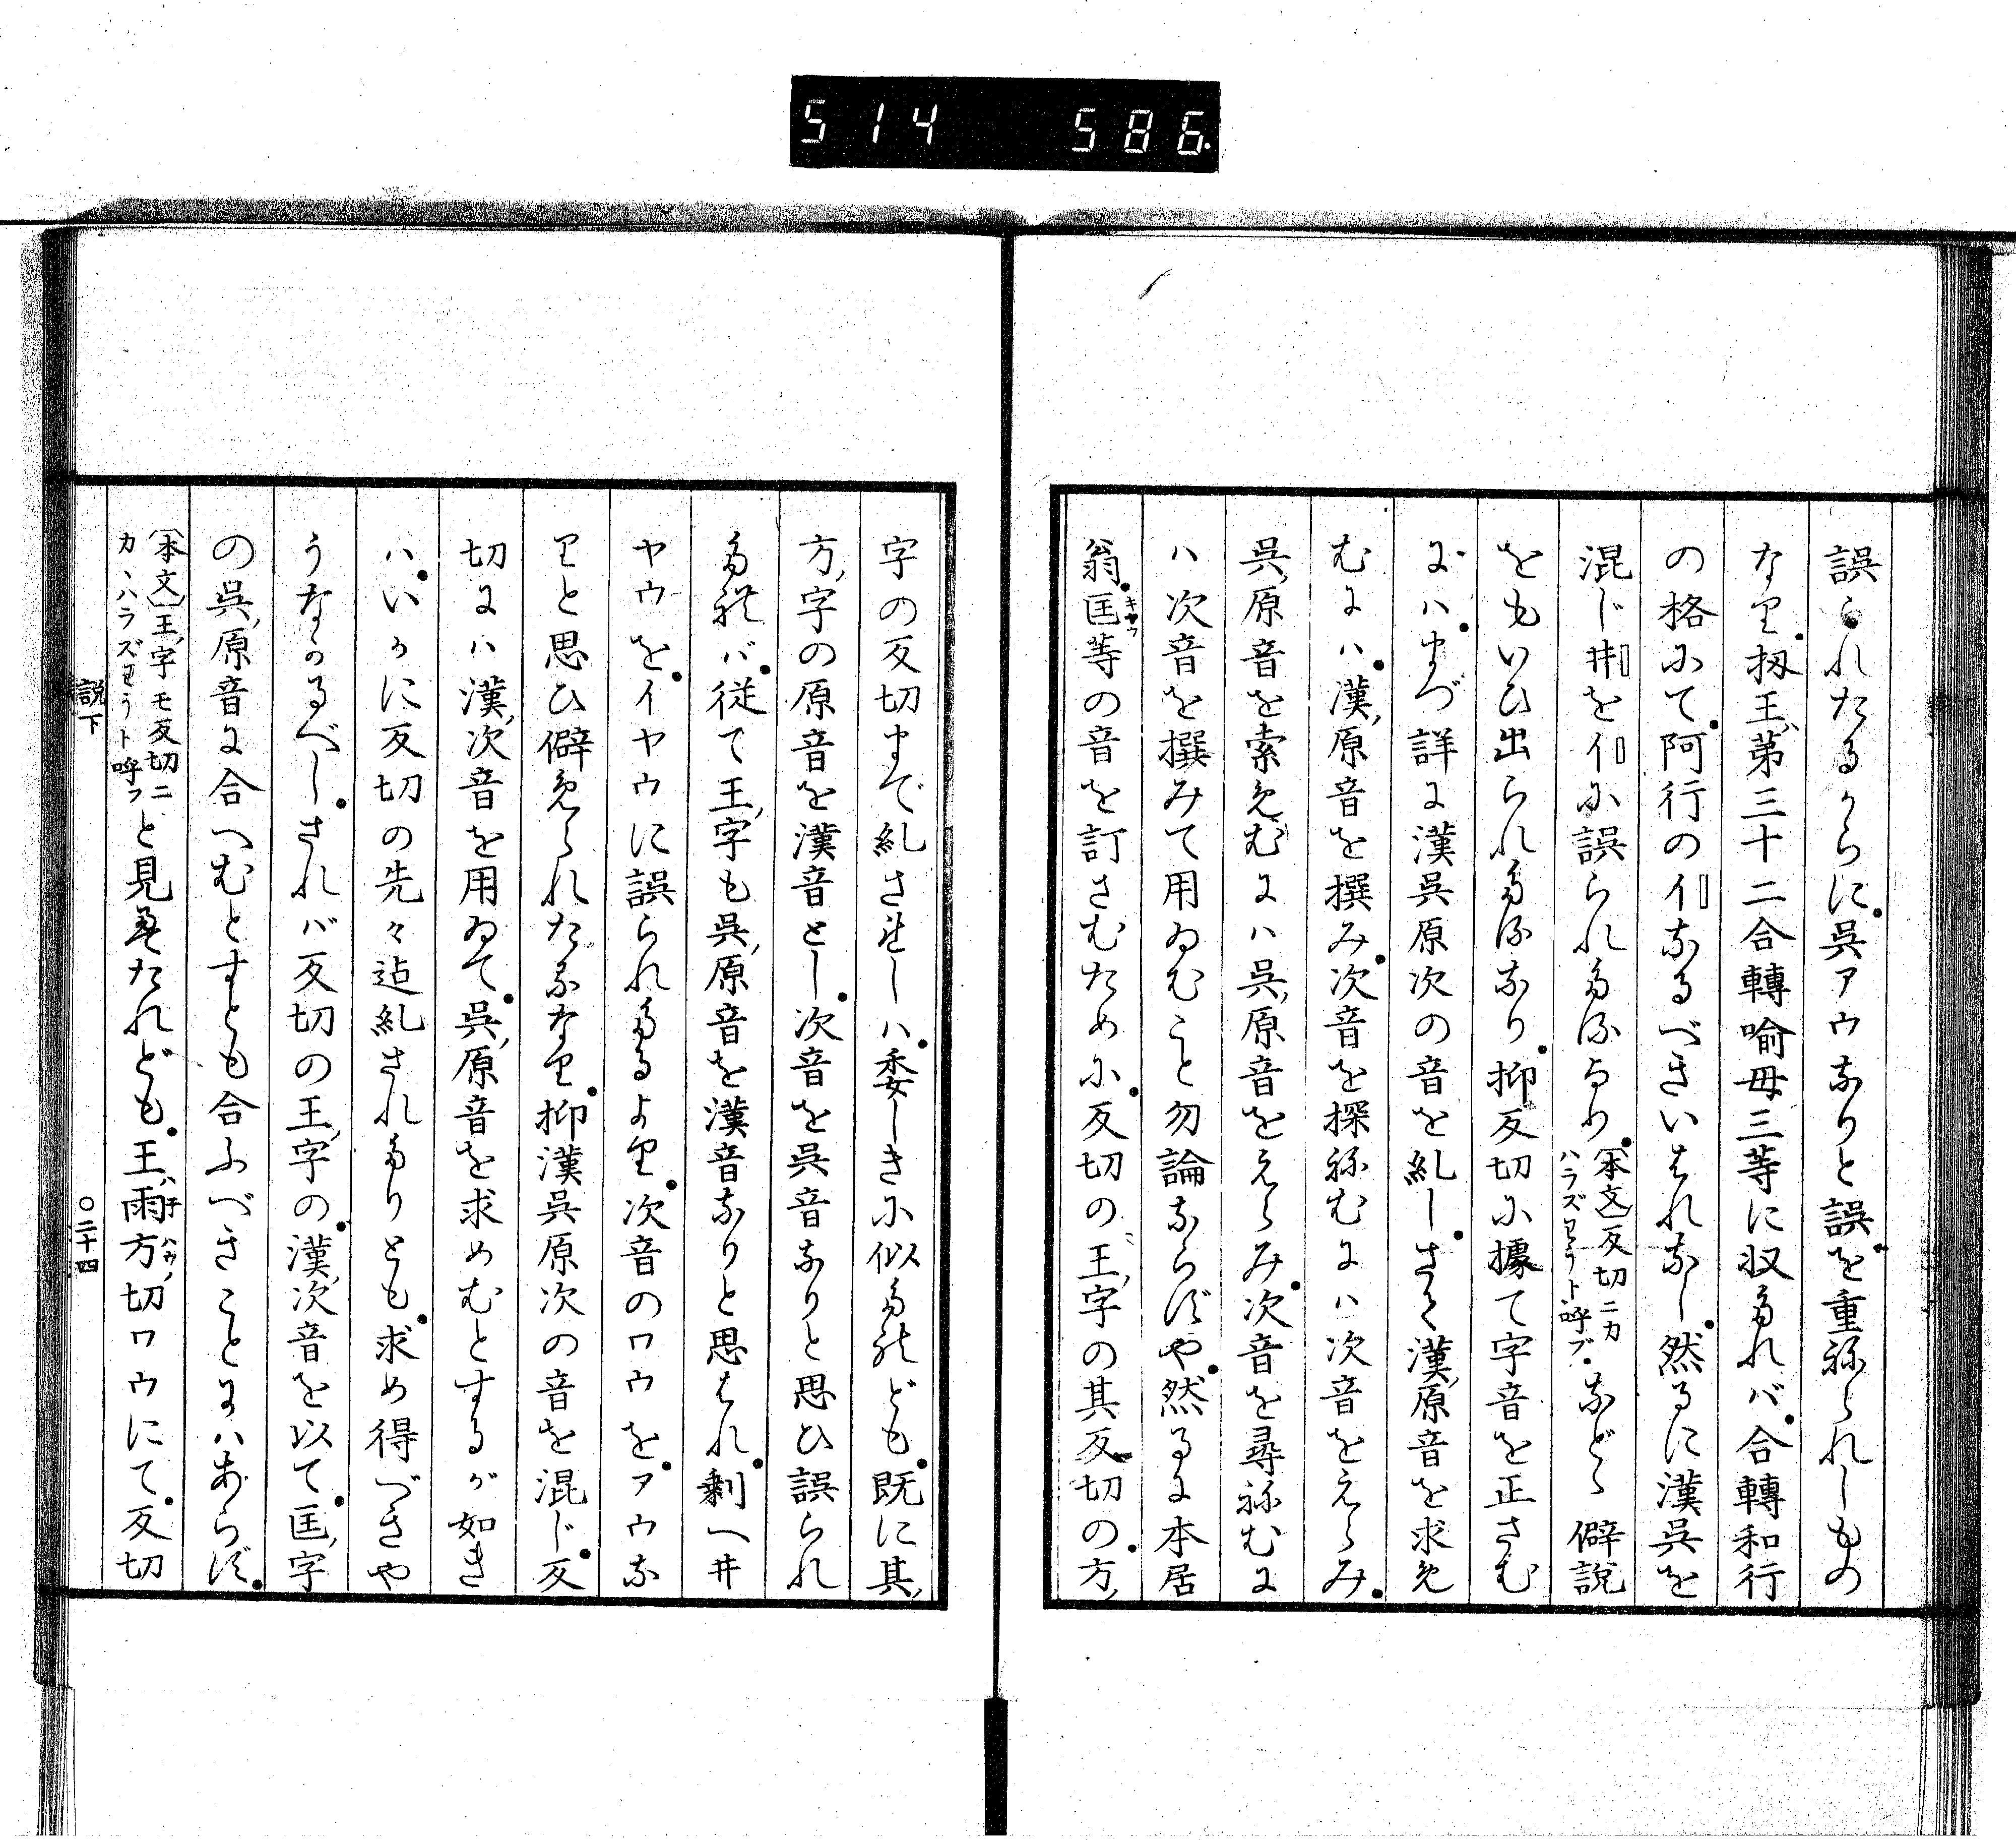 514 586.
誤られたるからに。呉アウなりと誤を重ねられしもの
なり。扨王、第三十二合轉喩母三等に収たれバ。合轉和行
の格にて。阿行のイなるべきいはれなし。然るに漢呉を
混じ井をイに誤られたるなり。〔本文〕反切ニカ
ハラズわうト呼ブ。などゝ僻説
をもいひ出られたるなり。抑反切に據て字音を正さむ
にハ。まづ詳に漢呉原次の音を糺し。さて漢、原音を求め
むにハ。漢、原音を撰み。次音を探ねむにハ次音をえらみ。
呉、原音を索めむにハ呉、原音をえらみ。次音を尋ねむに
ハ次音を撰みて用ゐむこと勿論ならずや。然るに本居
翁。匡キヤウ等の音を訂さむために。反切の王、字の其反切の。方、
字の反切まで糺させしハ。委しきに似たれども。既に其、
方、字の原音を漢音とし。次音を呉音なりと思ひ誤られ
たれバ。従て王、字も呉、原音を漢音なりと思はれ。剰へ井
ヤウを。イヤウに誤られたるより。次音のワウを。アウな
りと思ひ僻められたるなり。抑漢呉原次の音を混じ。反
切にハ漢、次音を用ゐて。呉、原音を求めむとするが如き
ハ。いかに反切の先々迠糺されたりとも。求め得べきや
うなかるべし。されバ反切の王、字の。漢、次音を以て。匡、字
の呉、原音に合へむとすとも合ふべきことにハあらず。
〔本文〕王、字モ反切ニ
カヽハラズわうト呼フ と見えたれども。王、ハ雨于方ハウ、切ワウにて。反切
説下
〇二十四